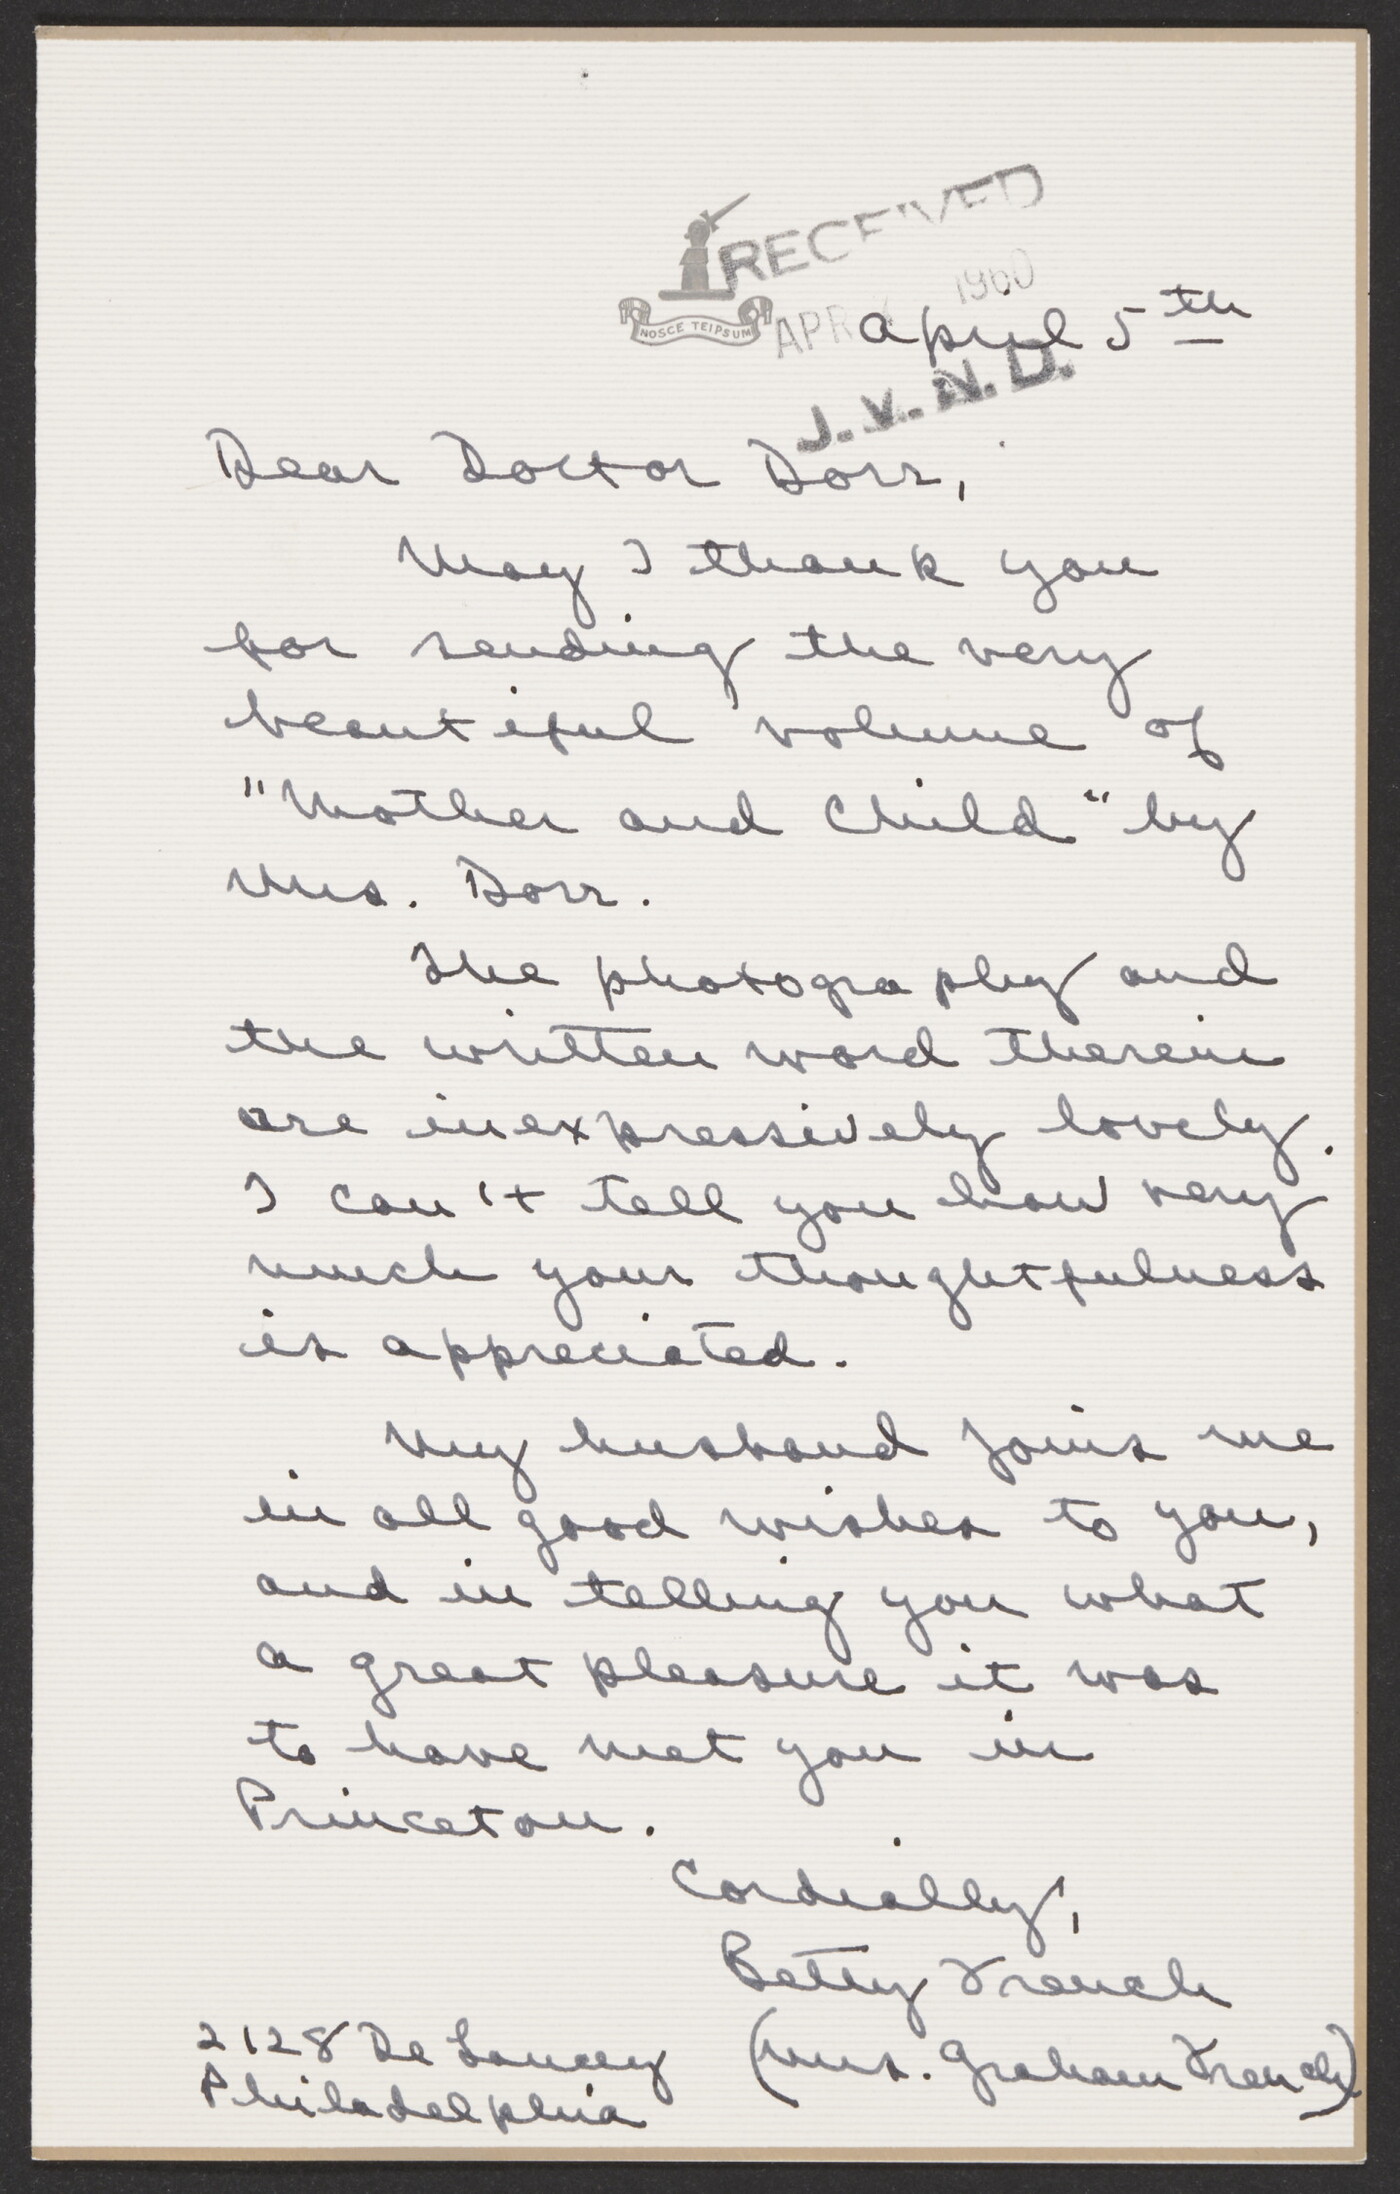 RECEIVED
APR 1960
NOSCE TEIPSUM
April 5th
J.V.N.D.
Dear Doctor Dorr,
May I thank you
for sending the very
beautiful volume of
"Mother and Child" by
Mrs. Dorr.
The photography and
the written word therein
are inexpressively lovely.
I can't tell you how very
much your thoughtfulness
is appreciated.
My husband joins me
in all good wishes to you,
and in telling you what
a great pleasure it was
to have met you in
Princeton.
Cordially,
Betty French
(Mrs. Graham French)
2128 De Lancey
Philadelphia